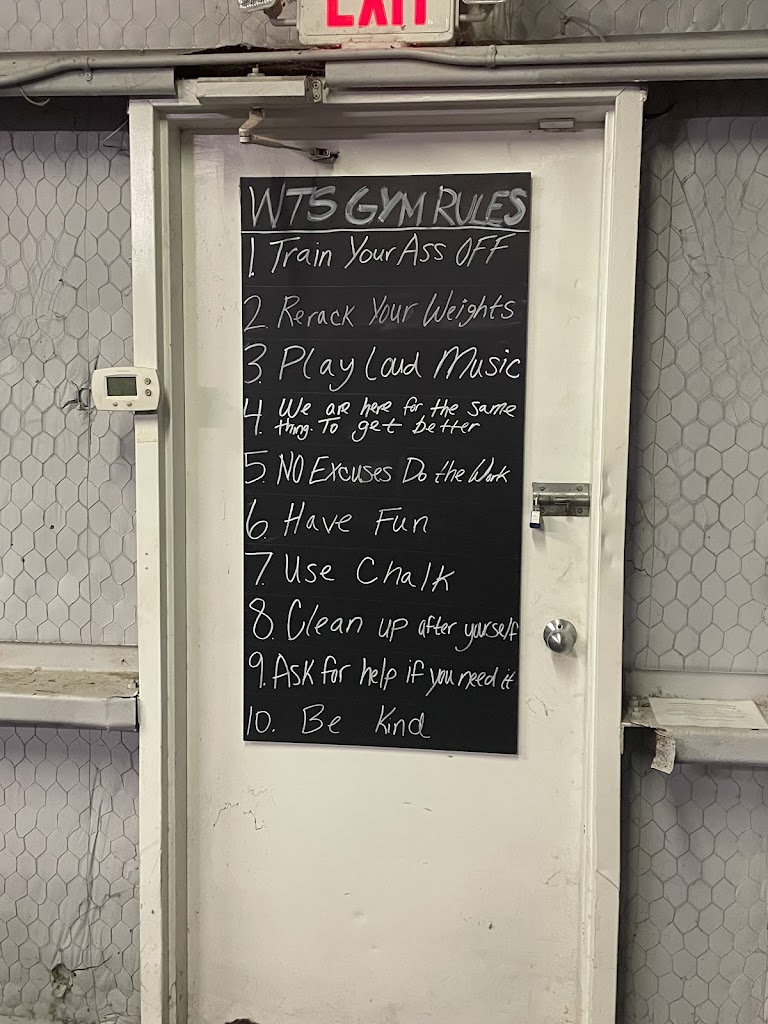 EXIT
WTS GYM RULES
1. Train Your Ass OFF
2. Rerack Your Weights
3. Play Loud Music
4. We are here for the same
thing. To get better
5. NO Excuses Do the Work
6. Have Fun
7. Use Chalk
8. Clean up after yourself
9. Ask for help if you need it
10. Be Kind